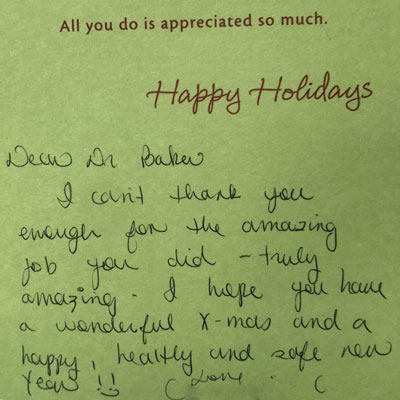 All you do is appreciated so much.
Happy Holidays
Dear Dr Baker
I can't thank you
enough for the amazing
job you did - truly
amazing. I hope you have
a wonderful X-mas and a
happy, healthy and safe new
Year !!
Love